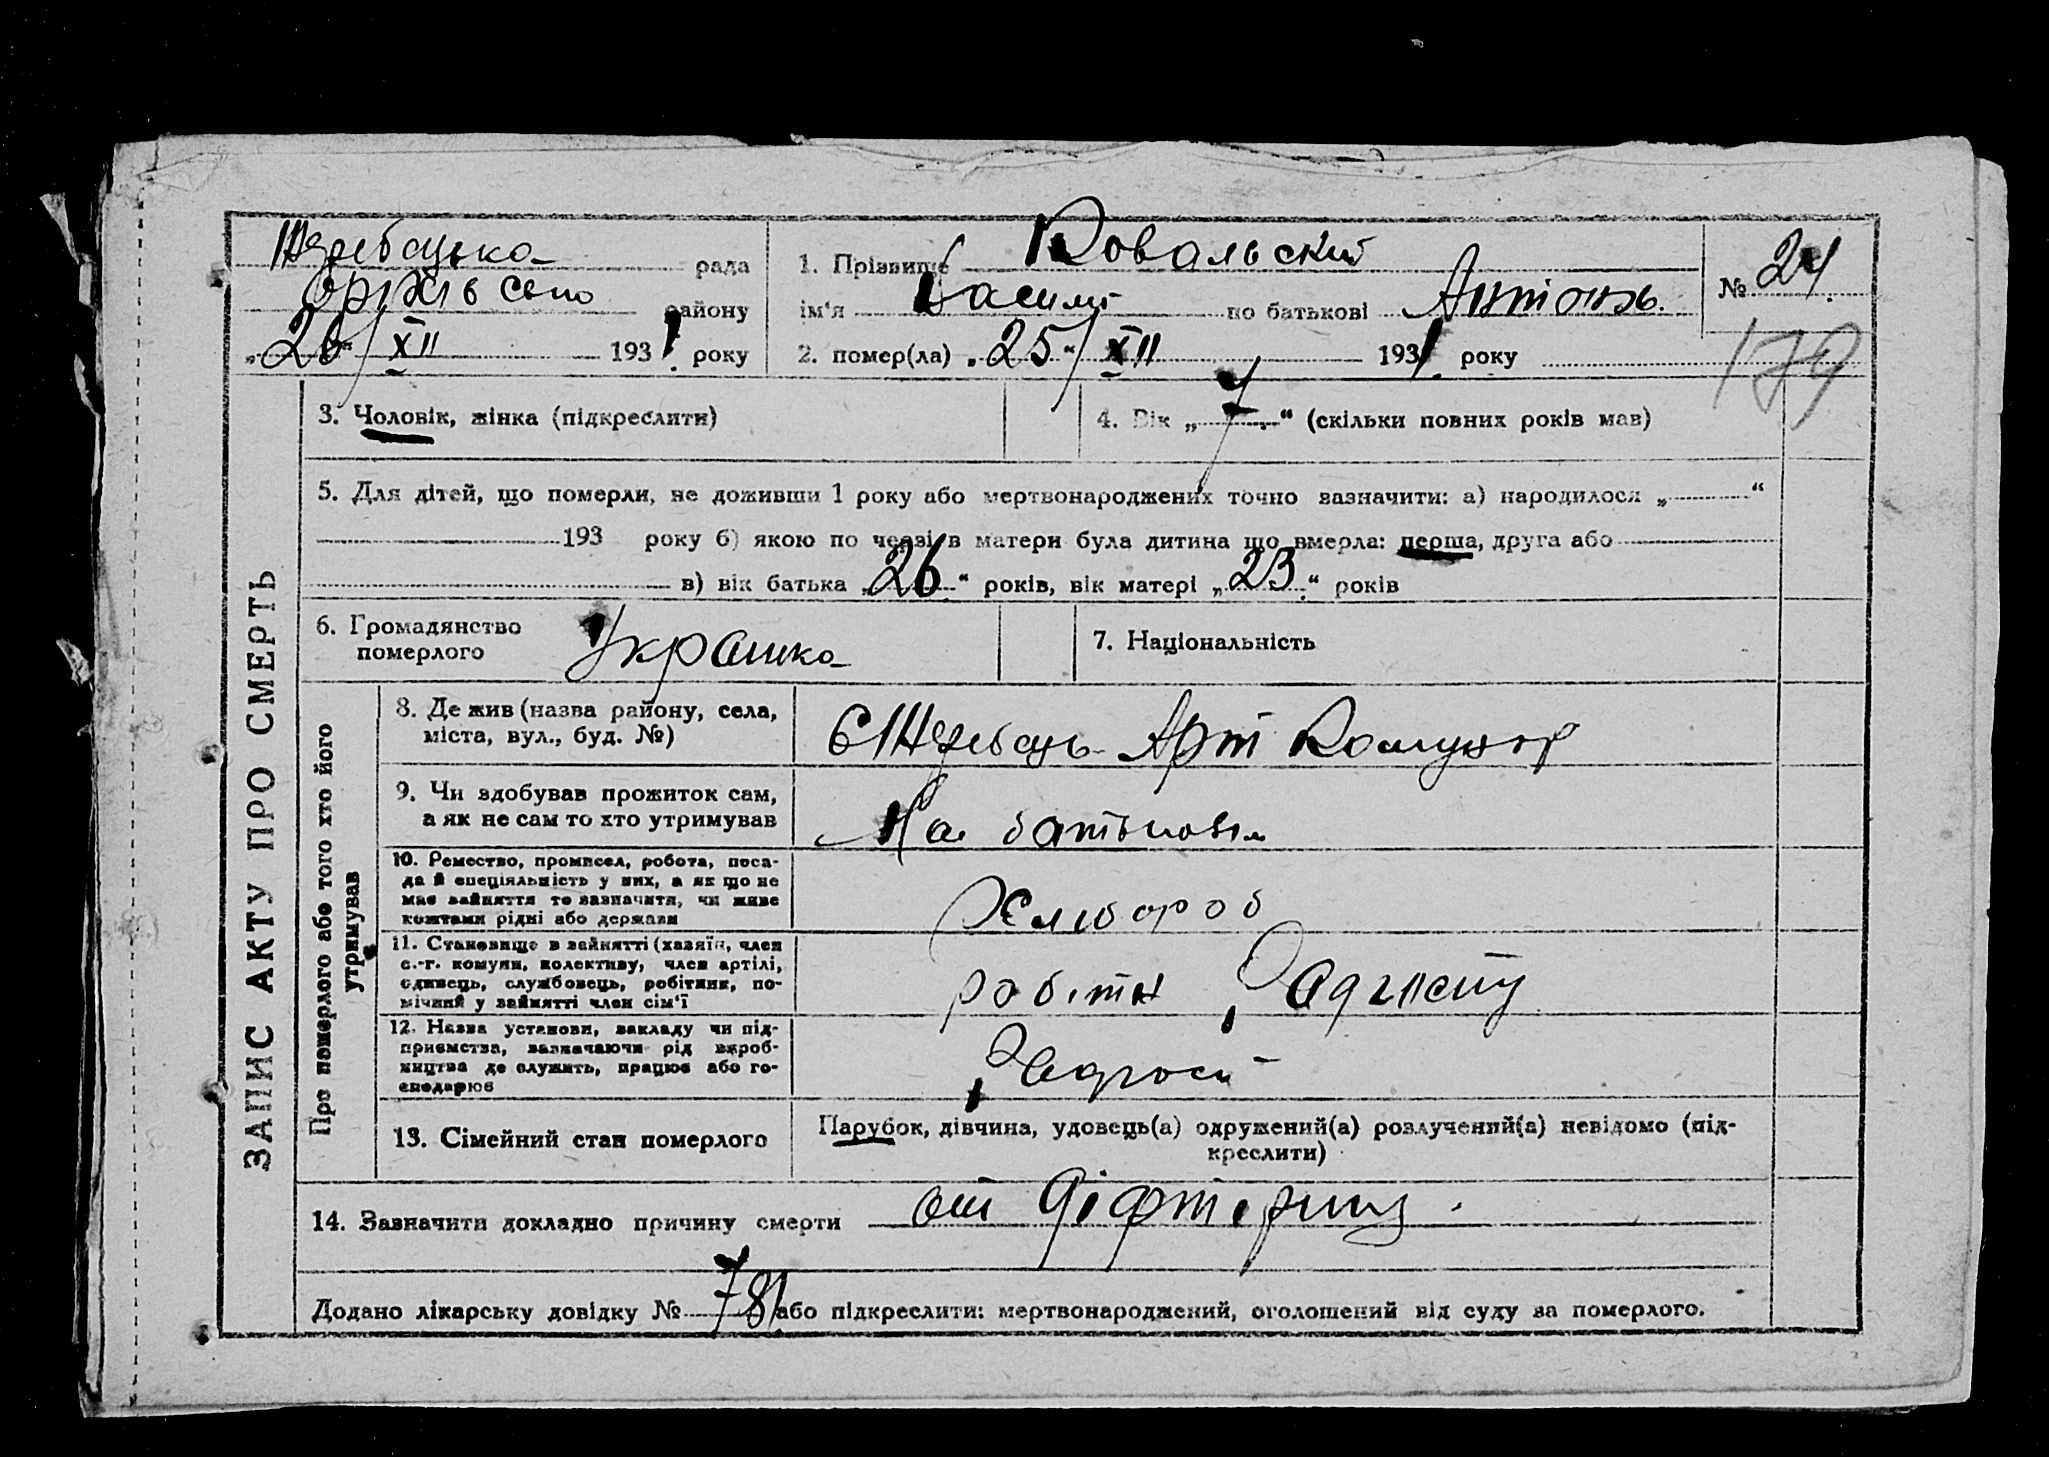 Жеребецька рада
Оріхівсько району
„26“ XII 1931 року
1. Прізвище Ковальский
ім'я Василь по батькові Антонов.
№ 24
2. помер(ла) „25“ XII 1931 року
179
3. Чоловік, жінка (підкреслити)
4. Вік „7“ (скільки повних років мав)
5. Для дітей, що померли, не доживши 1 року або мертвонароджених точно зазначити: а) народилося „ “
193 року б) якою по черзі в матери була дитина що вмерла: перша, друга або
в) вік батька „26“ років, вік матері „23“ років
6. Громадянство
померлого
7. Національність
ЗАПИС АКТУ ПРО СМЕРТЬ
Про померлого або того хто його
утримував
8. Де жив (назва району, села,
міста, вул., буд. №)
Арт
9. Чи здобував прожиток сам,
а як не сам то хто утримував
На
10. Ремество, промисел, робота, поса-
да й специяльність у них, а як що не
має зайняття то зазначити, чи живе
коштами рідні або держави
Хлібороб
11. Становище в зайнятті (хазяїн, член
с.-г. комуни, колективу, член артілі,
одинець, службовець, робітник, по-
мічний у зайнятті член сім'ї
робітн Радгоспу
12. Назва установи, закладу чи під-
приємства, зазначаючи рід вироб-
ництва де служить, працює або го-
сподарює
Радгосп
13. Сімейний стан померлого
Парубок, дівчина, удовець(а) одружений(а) розлучений(а) невідомо (під-
креслити)
14. Зазначити докладно причину смерти от дифтерии
Додано лікарську довідку № 781 або підкреслити: мертвонароджений, оголошений від суду за померлого.